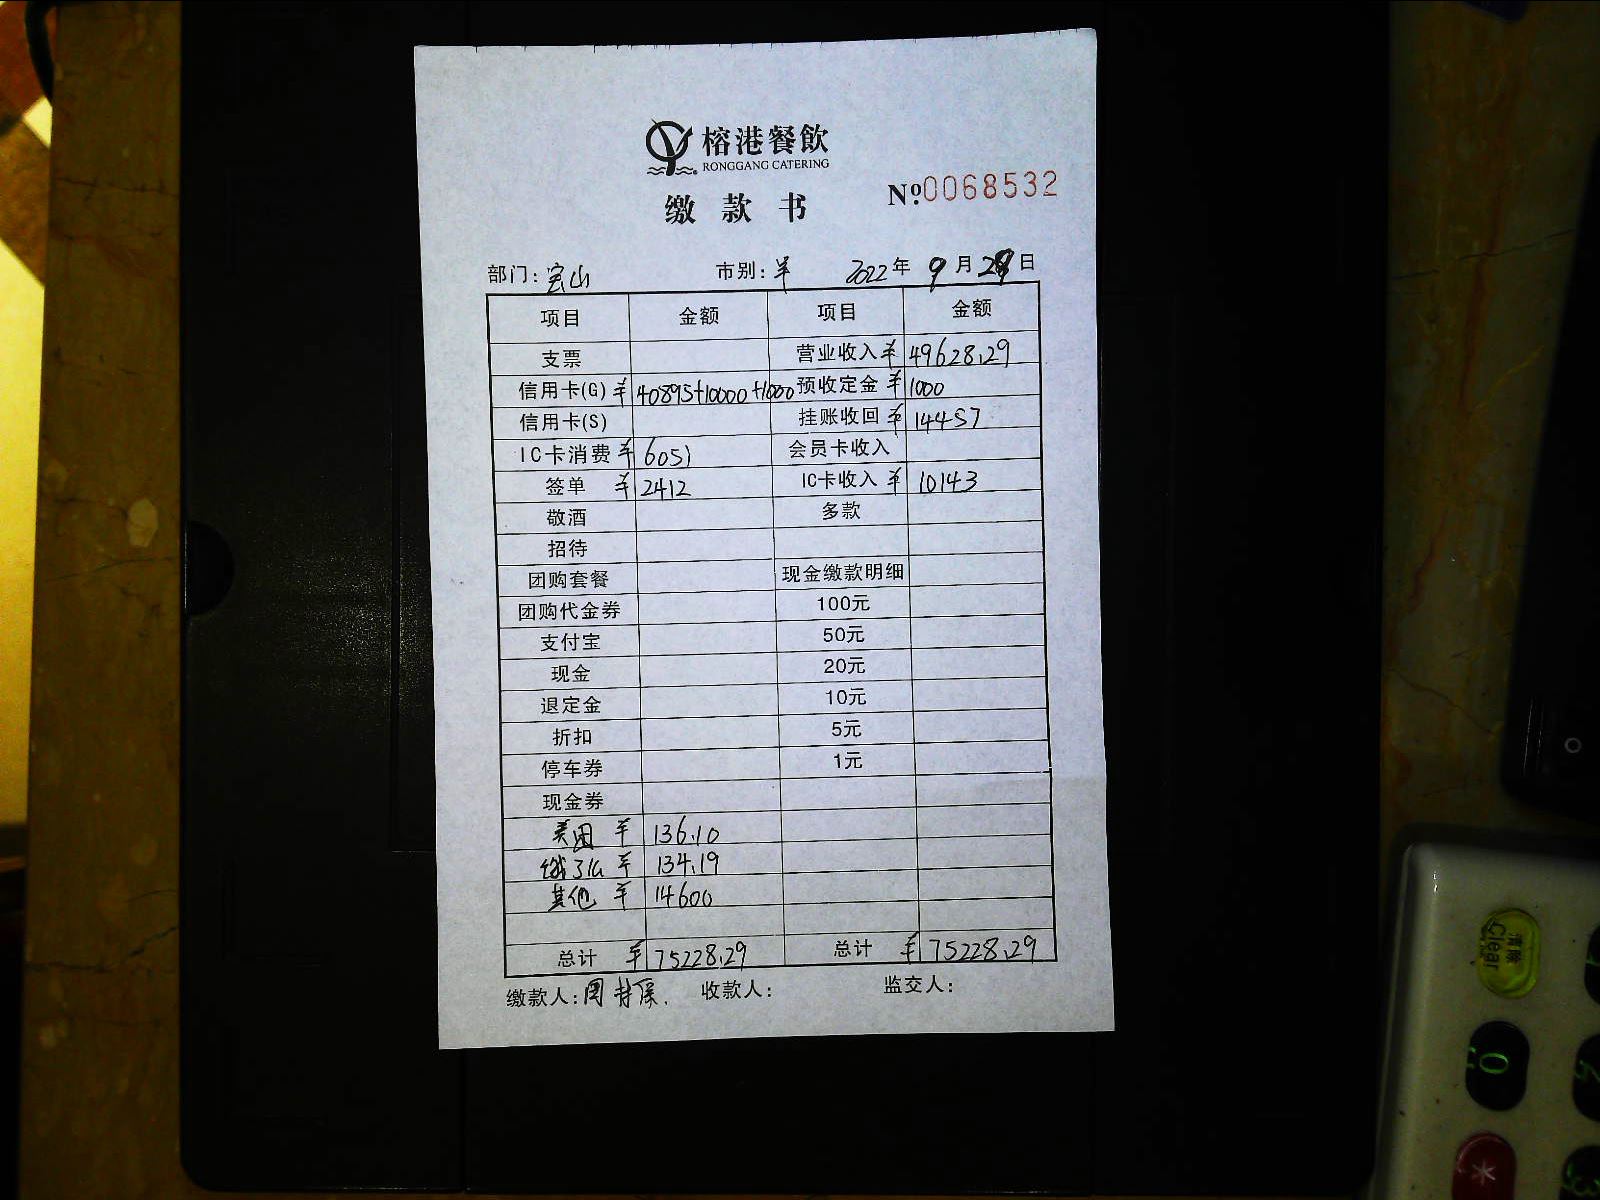 榕港餐飲
RONGGANG CATERING
缴款书 Nº:0068532
部门: 宝山 市别: 2022年 9月 日
项目 金额 项目 金额
支票 营业收入 ¥ 49628.29
信用卡(G) ¥ 40895+10000+1000 预收定金 ¥ 1000
信用卡(S) 挂账收回 ¥ 14457
IC卡消费 ¥ 6051 会员卡收入
签单 ¥ 2412 IC卡收入 ¥ 10143
敬酒 多款
招待
团购套餐 现金缴款明细
团购代金券 100元
支付宝 50元
现金 20元
退定金 10元
折扣 5元
停车券 1元
现金券
美团 ¥ 136.10
饿了么 ¥ 134.19
其他 ¥ 14600
总计 ¥ 75228.29 总计 ¥ 75228.29
缴款人: 收款人: 监交人:
清除
Clear
0
*